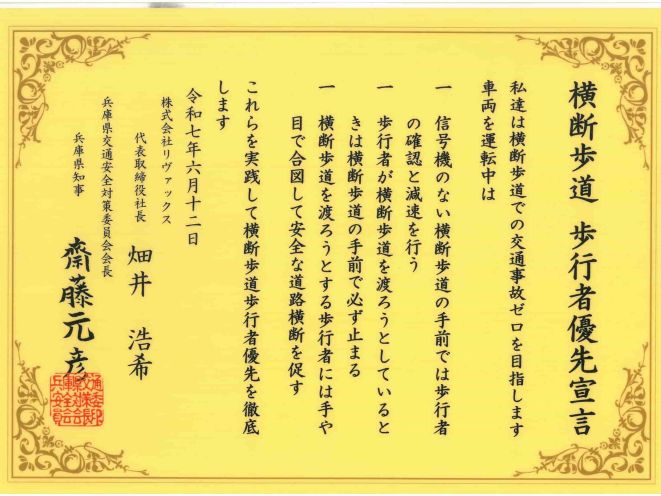 横断歩道 歩行者優先宣言
私達は横断歩道での交通事故ゼロを目指します
車両を運転中は
一 信号機のない横断歩道の手前では歩行者
の確認と減速を行う
一 歩行者が横断歩道を渡ろうとしていると
きは横断歩道の手前で必ず止まる
一 横断歩道を渡ろうとする歩行者には手や
目で合図して安全な道路横断を促す
これらを実践して横断歩道歩行者優先を徹底
します
令和七年六月十二日
株式会社リヴァックス
代表取締役社長 畑井 浩希
兵庫県交通安全対策委員会会長
兵庫県知事 齋藤元彦